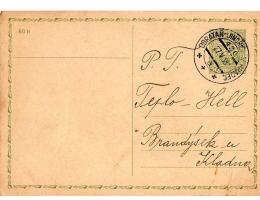 50 h
P. T.
Teplo - Hell
Brandýsek u
Kladna